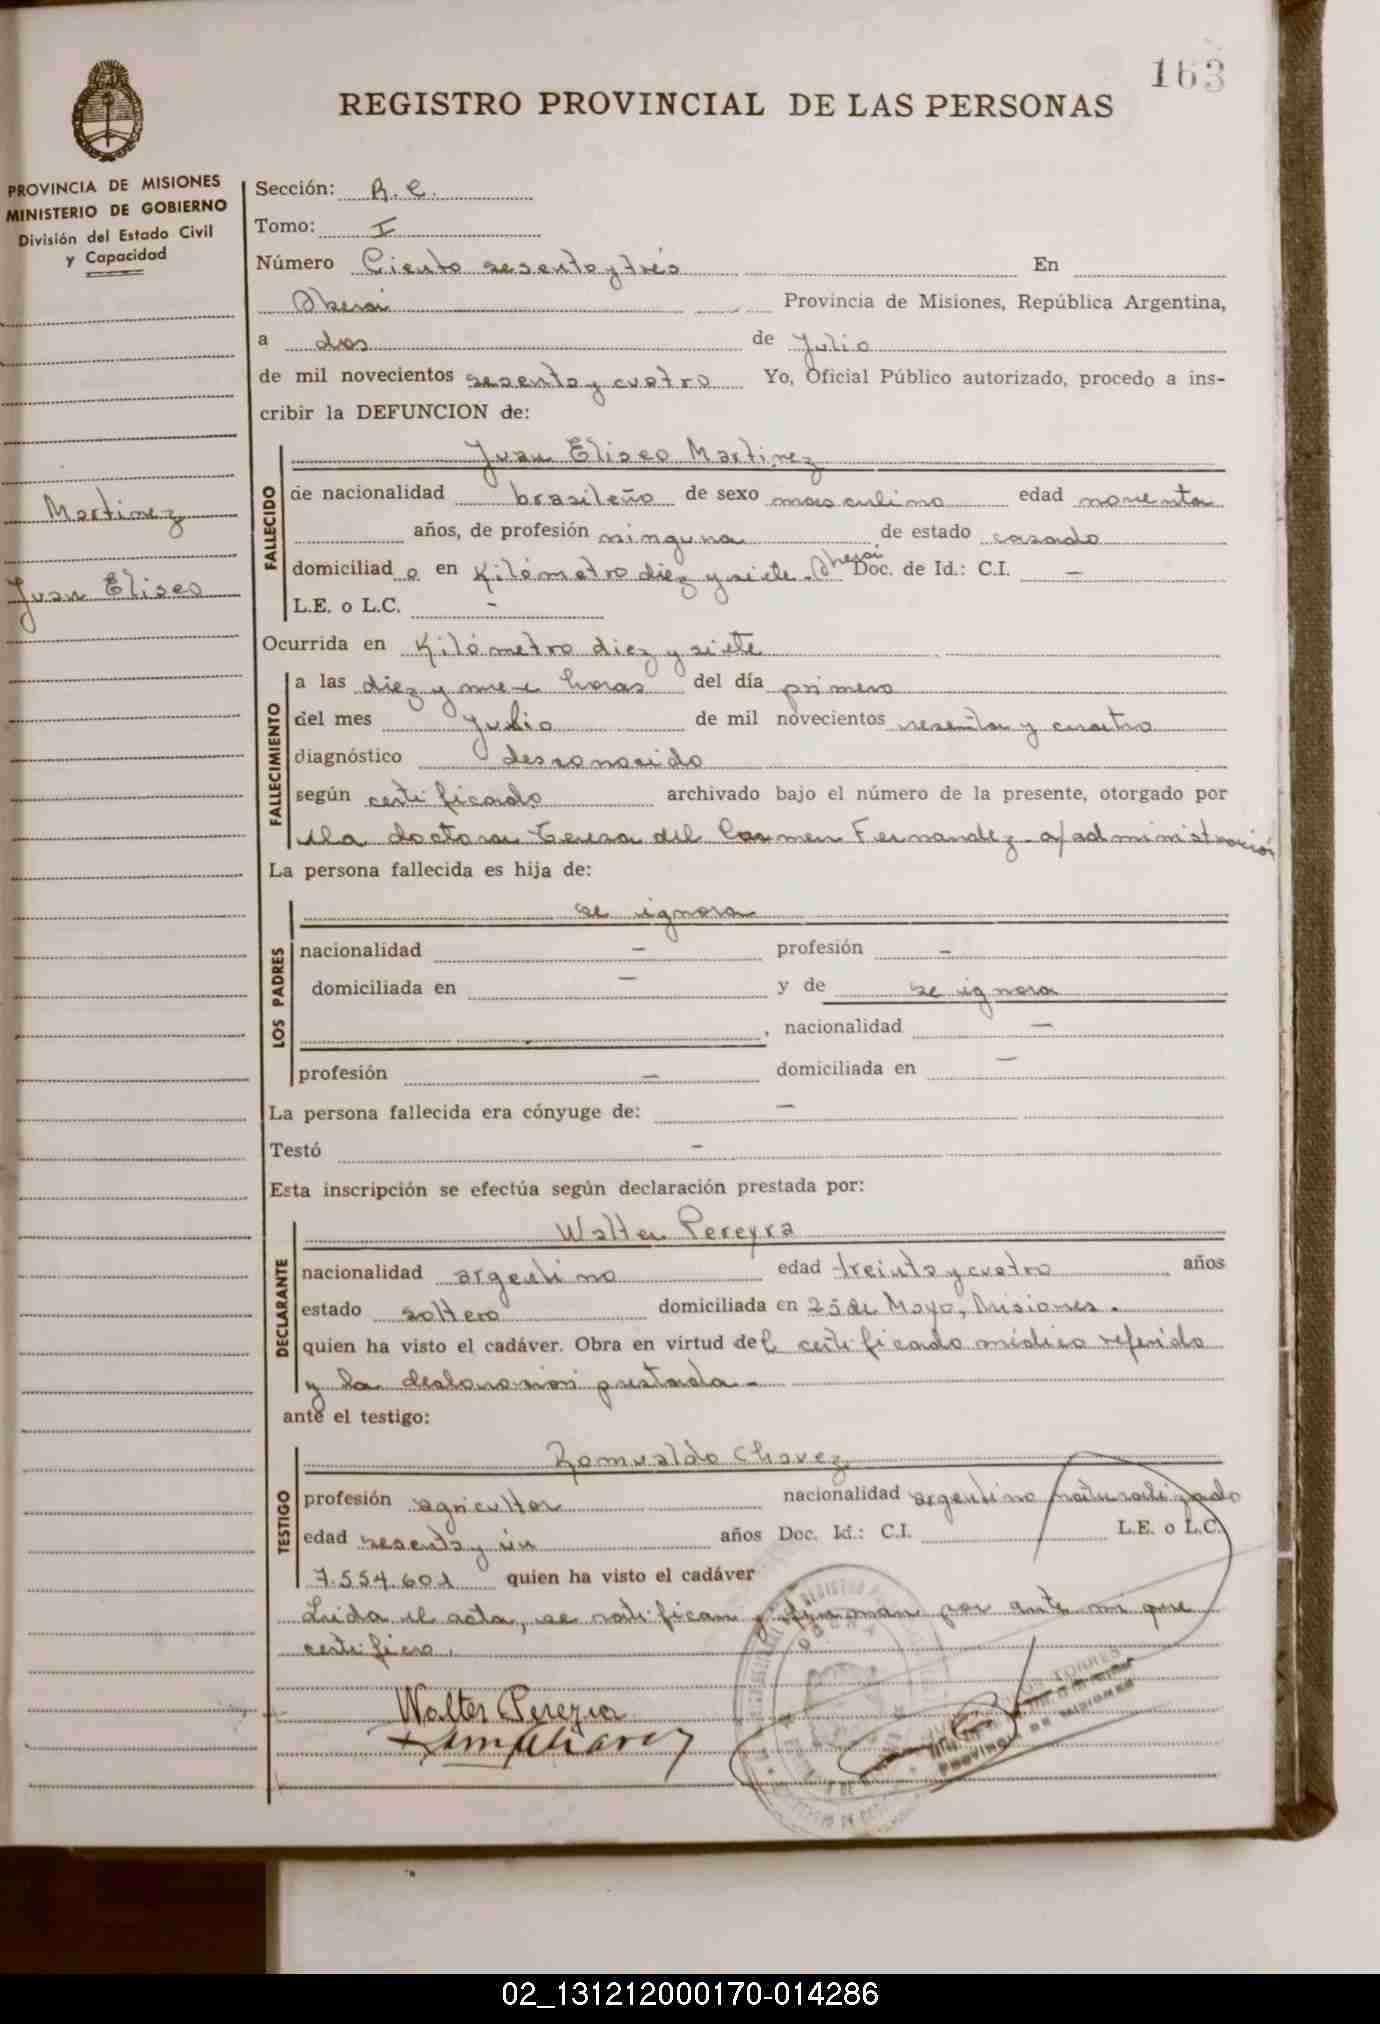 163
REGISTRO PROVINCIAL DE LAS PERSONAS
PROVINCIA DE MISIONES
MINISTERIO DE GOBIERNO
División del Estado Civil
y Capacidad
Sección: R. C.
Tomo: I
Número Ciento sesenta y tres En
Oberá Provincia de Misiones, República Argentina,
a dos de Julio
de mil novecientos sesenta y cuatro Yo, Oficial Público autorizado, procedo a ins-
cribir la DEFUNCION de:
Martinez
Juan Eliseo
FALLECIDO
Juan Eliseo Martinez
de nacionalidad brasileño de sexo masculino edad noventa
años, de profesión ninguna de estado casado
domiciliado en Kilómetro diez y siete - Oberá Doc. de Id.: C.I. —
L.E. o L.C. -
Ocurrida en Kilómetro diez y siete
FALLECIMIENTO
a las diez y nueve horas del día primero
del mes Julio de mil novecientos sesenta y cuatro
diagnóstico desconocido
según certificado archivado bajo el número de la presente, otorgado por
la doctora Teresa del Carmen Fernandez - a/administración
La persona fallecida es hija de:
LOS PADRES
se ignora
nacionalidad — profesión —
domiciliada en — y de se ignora
, nacionalidad —
profesión — domiciliada en —
La persona fallecida era cónyuge de: —
Testó -
Esta inscripción se efectúa según declaración prestada por:
DECLARANTE
Walter Pereyra
nacionalidad argentino edad treinta y cuatro años
estado soltero domiciliada en 25 de Mayo, Misiones.
quien ha visto el cadáver. Obra en virtud del certificado médico referido
y la declaración prestada -
ante el testigo:
TESTIGO
Romualdo Chavez
profesión agricultor nacionalidad argentino naturalizado
edad sesenta y ún años Doc. Id.: C.I. L.E. o L.C.
7.554.601 quien ha visto el cadáver
Leida el acta, se ratifican y firman por ante mi que
certifico.
Walter Pereyra
TORRES
PROVINCIA DE MISIONES
02_131212000170-014286